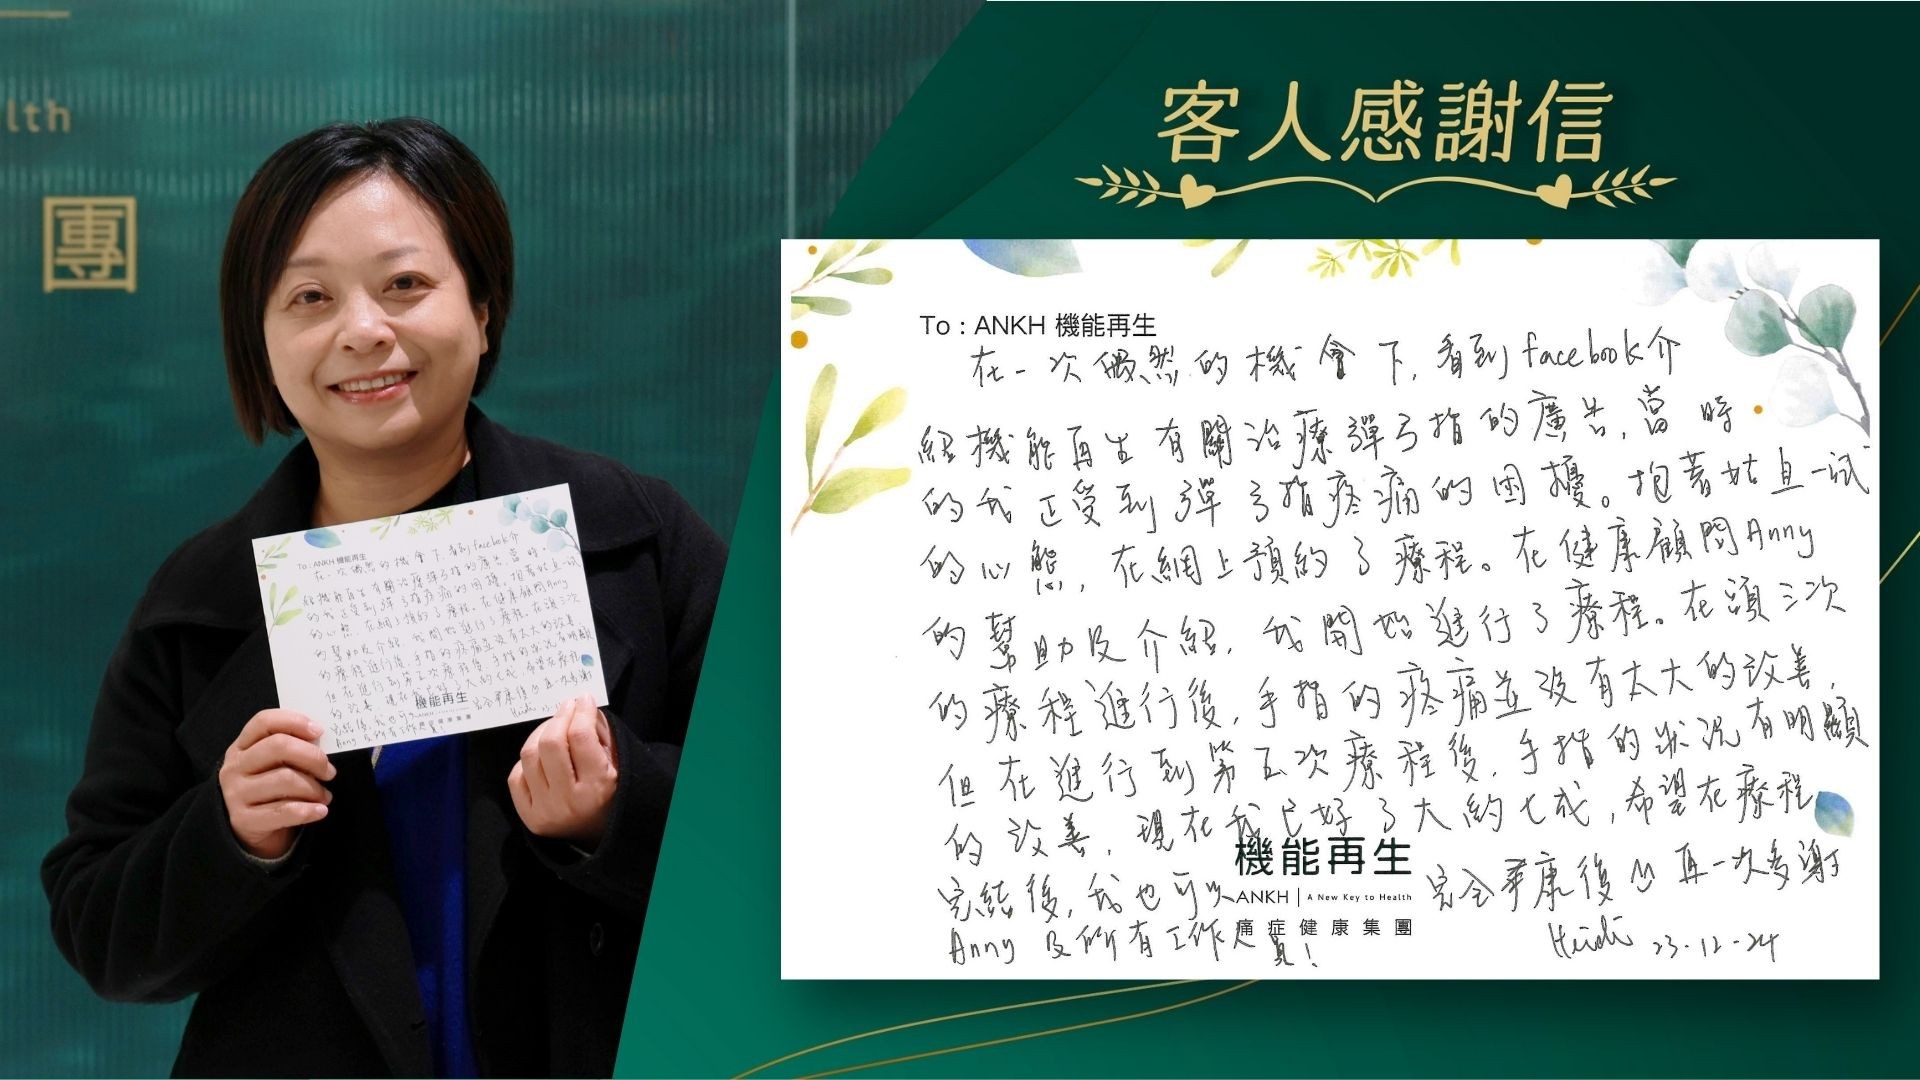 lth
團
客人感謝信
To : ANKH 機能再生
在一次偶然的機會下,看到facebook介
紹機能再生有關治療彈弓指的廣告,當時
的我正受到彈弓指疼痛的困擾。抱著姑且一試
的心態,在網上預約了療程。在健康顧問Anny
的幫助及介紹,我開始進行了療程。在頭三次
的療程進行後,手指的疼痛並沒有太大的改善,
但在進行到第五次療程後,手指的狀況有明顯
的改善,現在我已好了大約七成,希望在療程
完結後,我也可以完全康後 再一次多謝
Anny 及所有工作人員!
Heidi 23-12-24
機能再生
ANKH | A New Key to Health
痛症健康集團